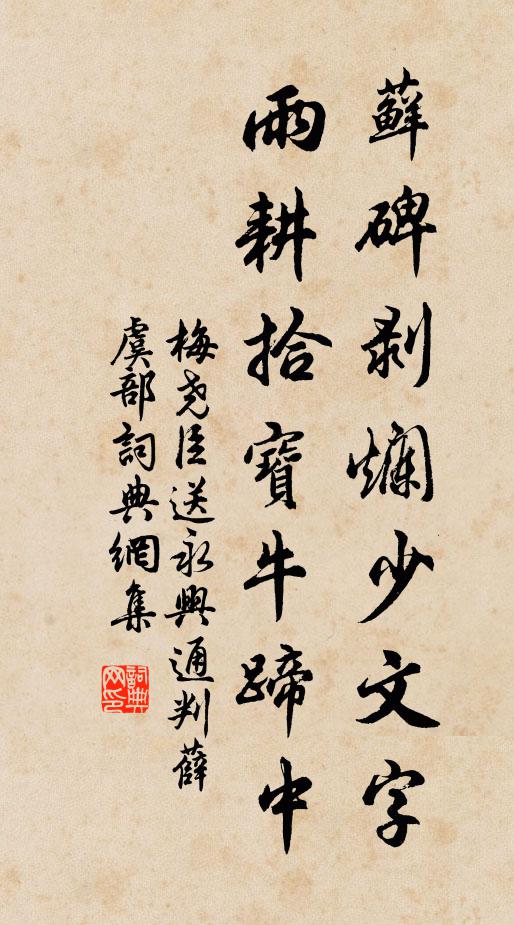 蘚碑剝爛少文字
雨耕拾寶牛蹄中
梅尧臣送永興通判薛
虞部詞典網集
詞典
网印